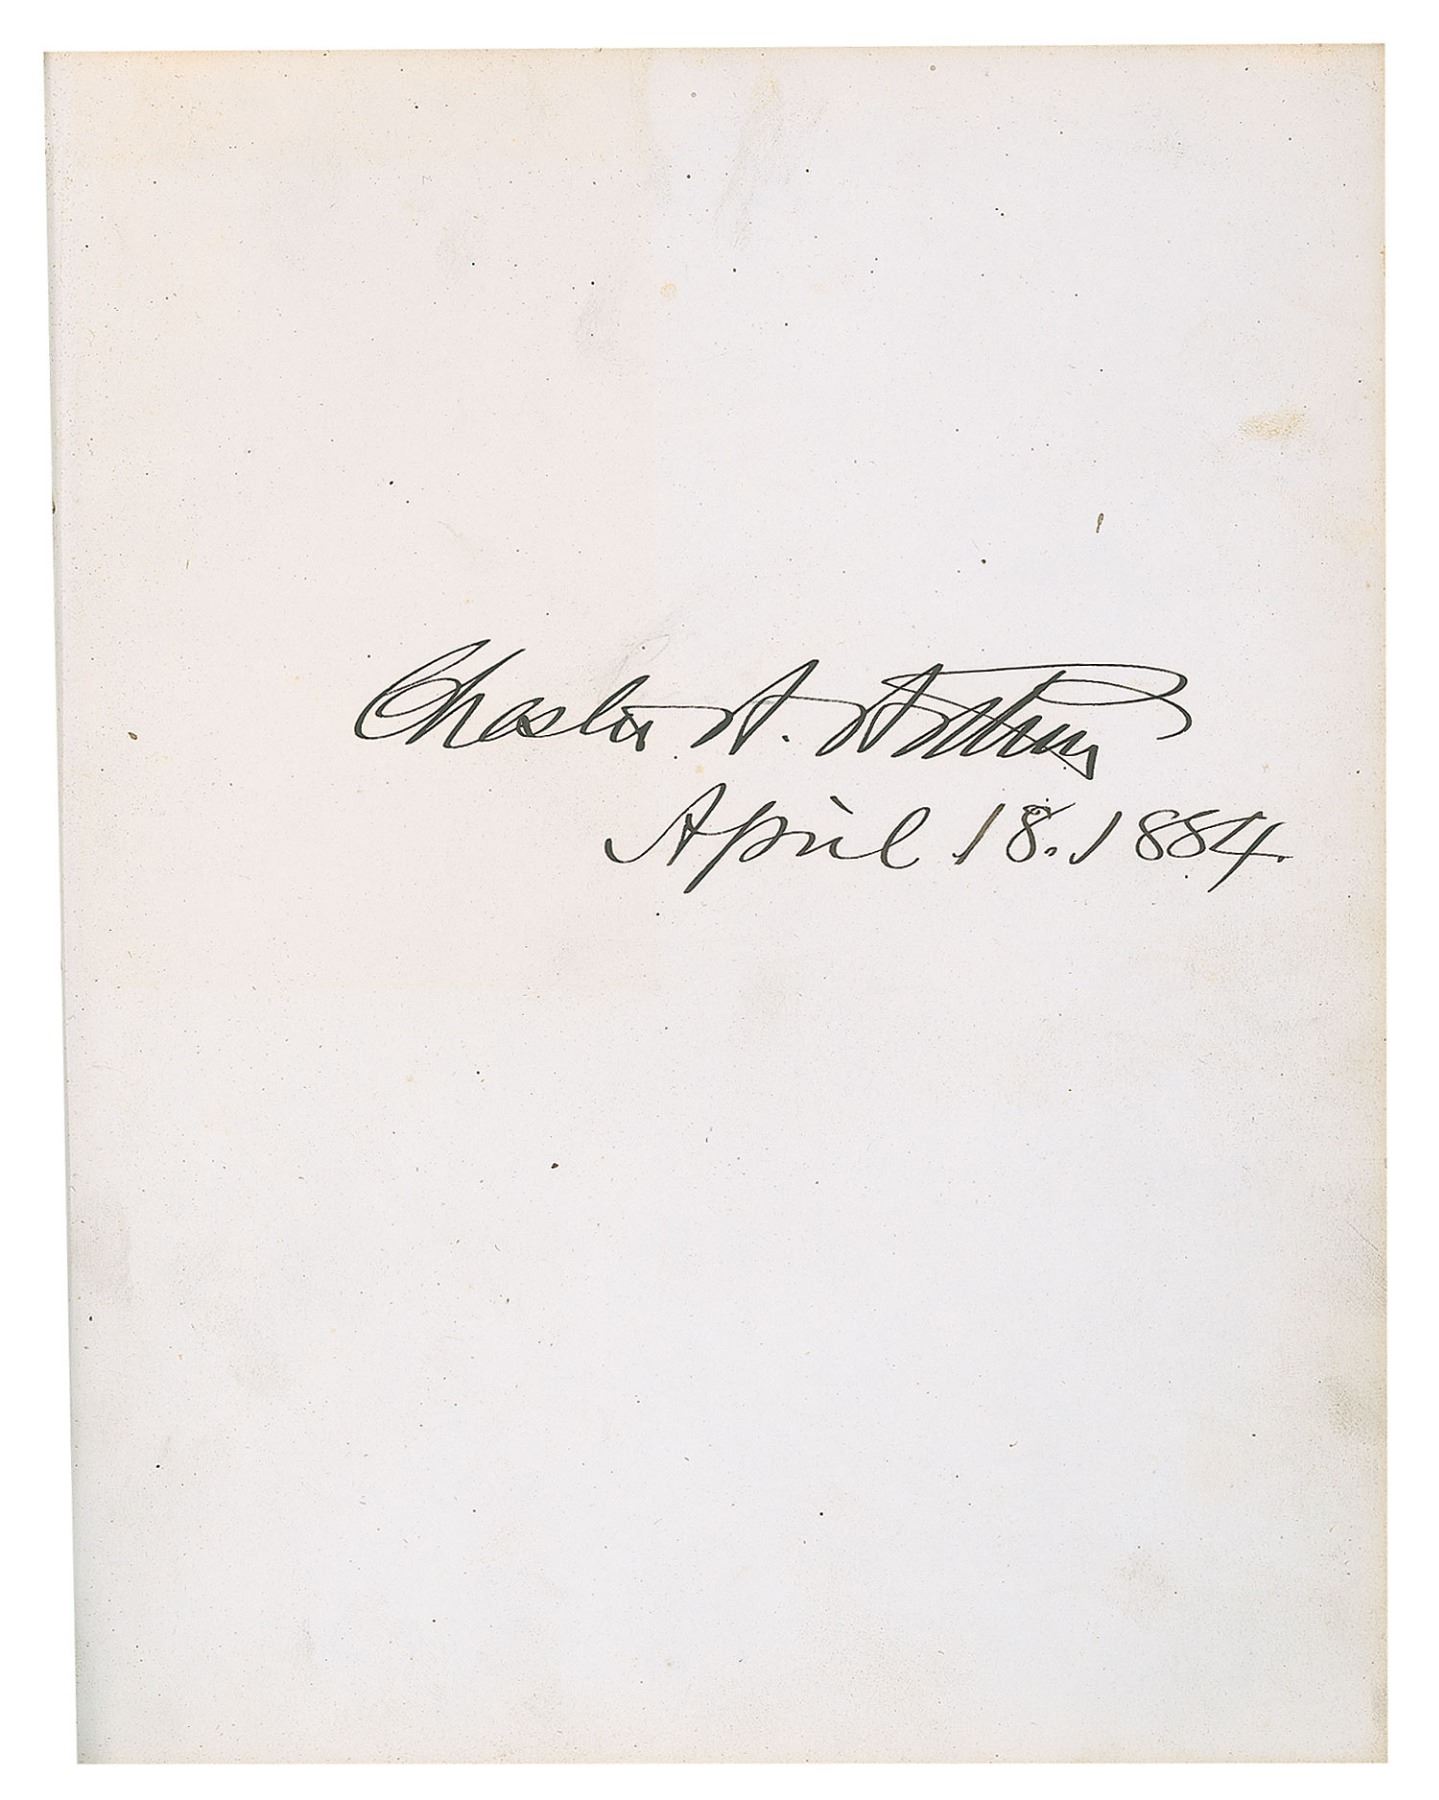 Chester A. Arthur
April 18. 1884.